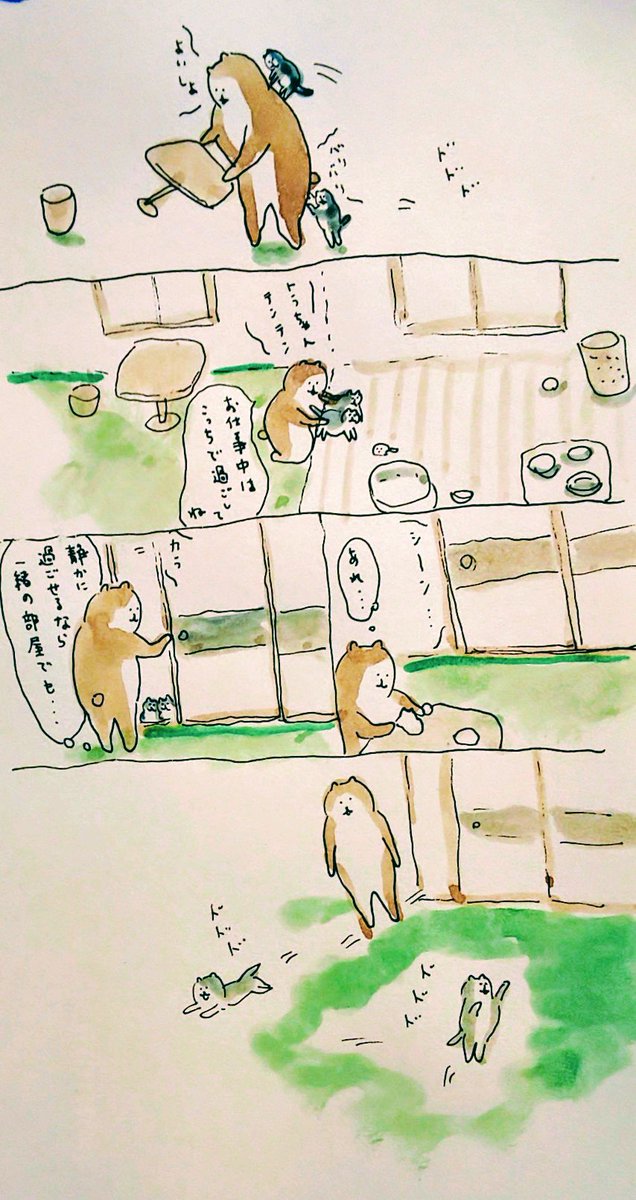 よいしょ
バリバリ
ドドド
トラちゃん
テンテン
お仕事中は
こっちで過ごして
ね
カラ
静かに
過ごせるなら
一緒の部屋でも…
シーン…
あれ…
ドドド
ドドド